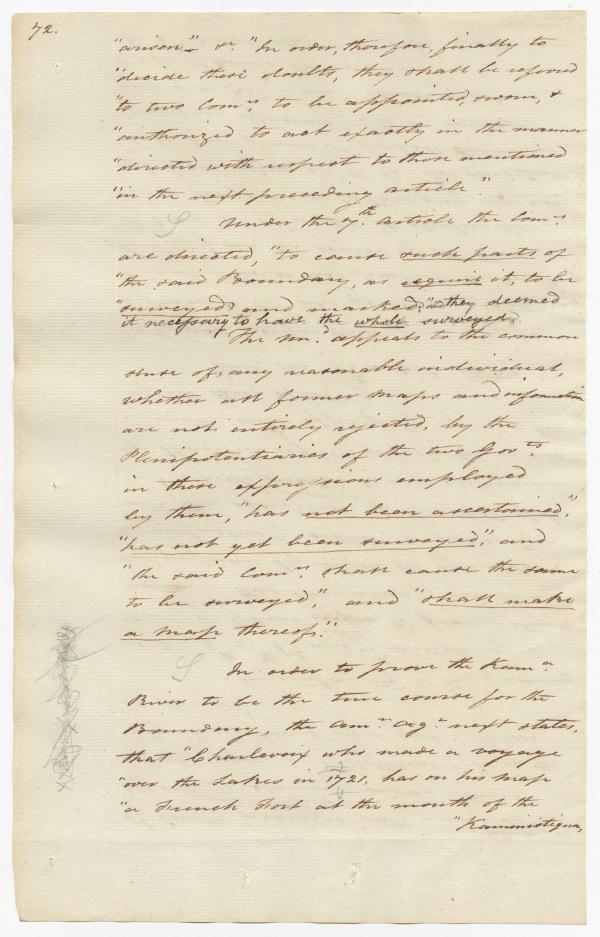 72.
"arisen"- &c. "In order, therefore, finally to
"decide these doubts, they shall be referred
"to two Comrs. to be appointed, sworn, &
"authorized to act exactly in the manner
"directed with respect to those mentioned
"in the next preceding article".
Under the 7th. article the Comrs.
are directed, "to cause such parts of
"the said Boundary, as require it, to be
"surveyed, and marked;" they deemed
it necessary to have the whole surveyed.
The appeals to the common
sense of, any reasonable individual,
whether all former maps and information
are not entirely rejected, by the
Plenipotentiaries of the two Govts.
in these expressions employed
by them, "has not been ascertained",
"has not yet been surveyed", and
"the said Comrs. shall cause the same
to be surveyed", and "shall make
a map thereof."
In order to prove the Kama.
River to be the true course for the
Boundary, the Amn. Agt. next states,
that "Charlevoix who made a voyage
"over the Lakes in 1721, has on his map
"a French Fort at the mouth of the
"Kaministiqua,